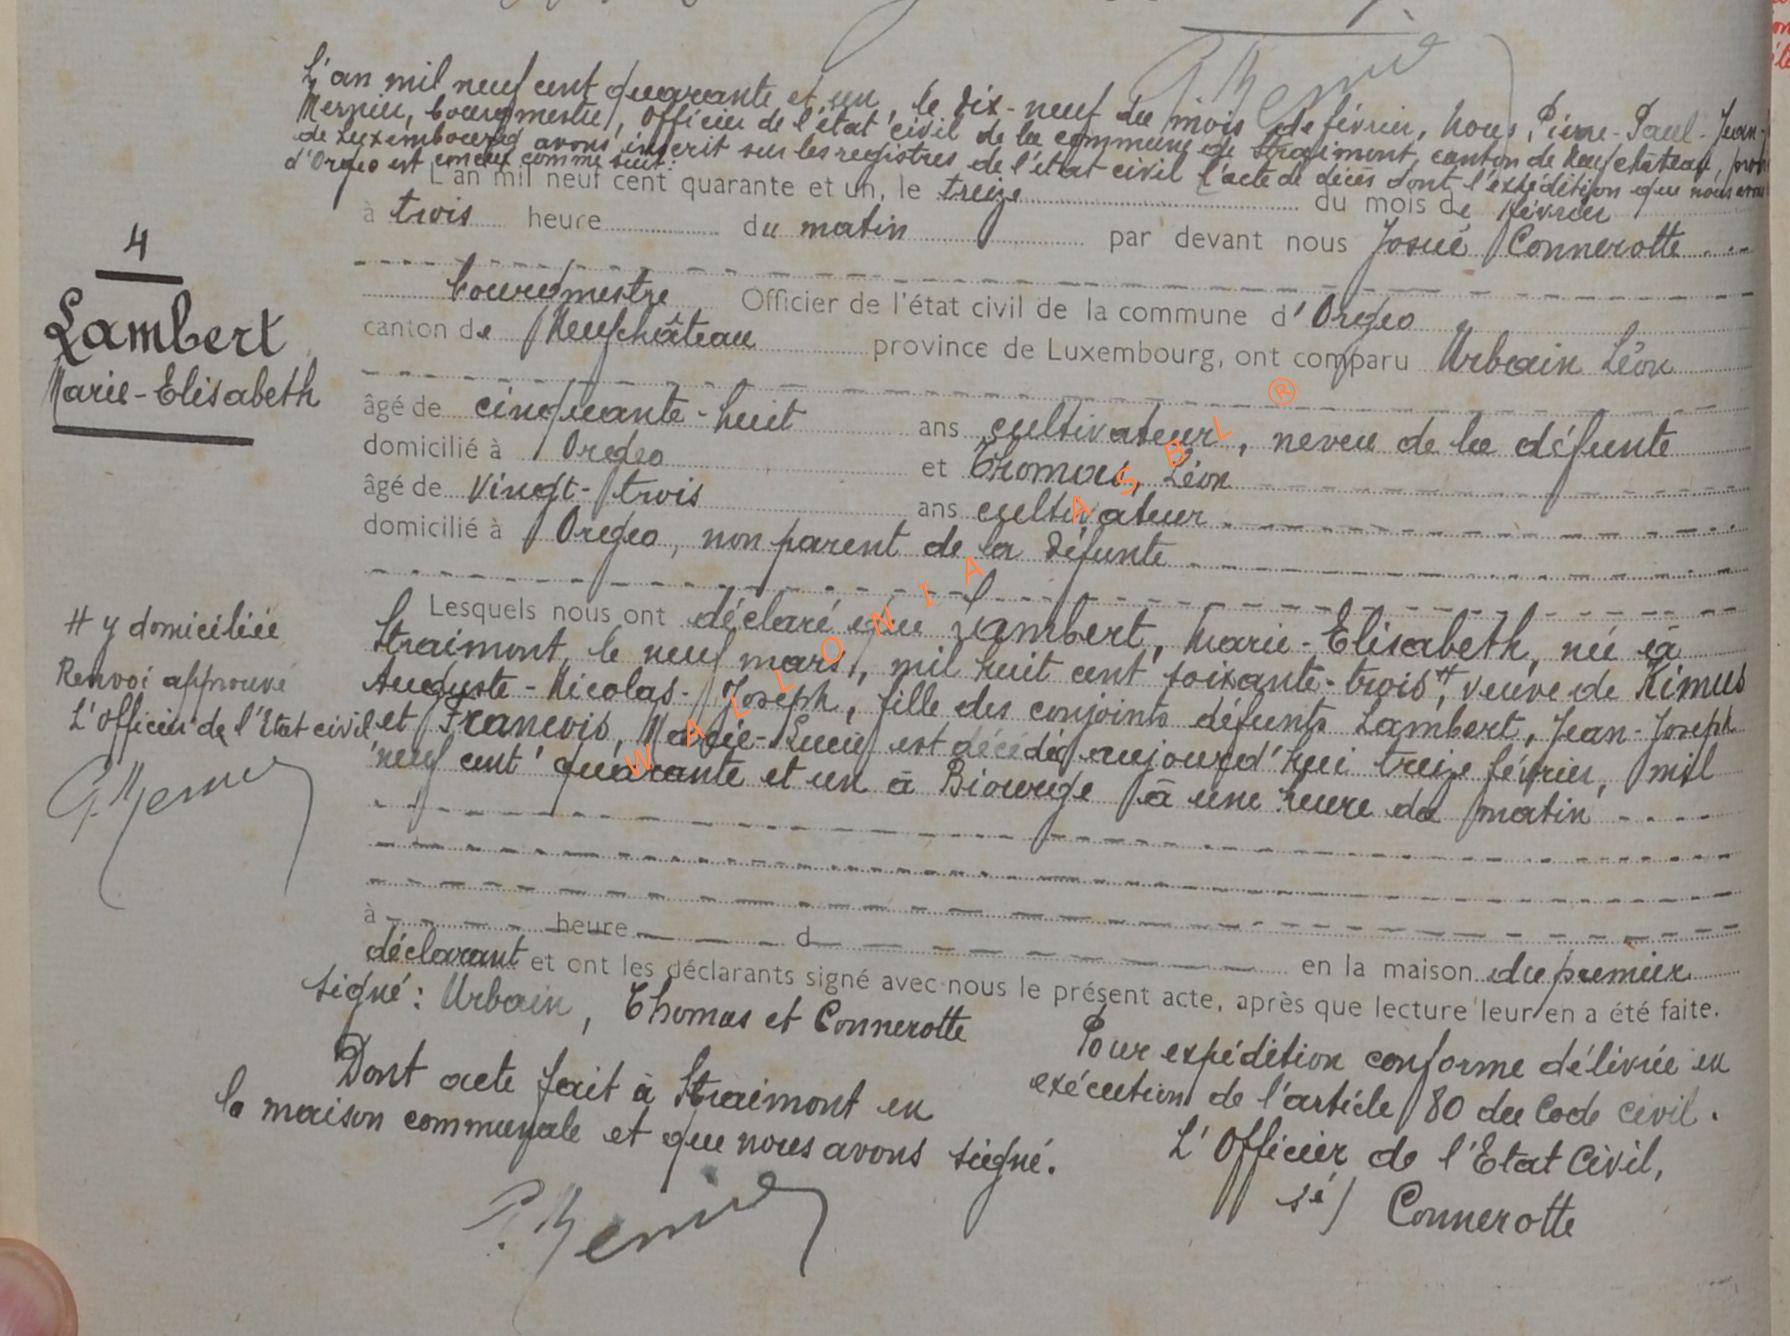 L'an mil neuf cent quarante et un, le dix-neuf du mois de février, Nous, Pierre-Paul-Jean-
Mernier, bourgmestre, Officier de l'état civil de la commune de Straimont, canton de Neufchâteau, prov
de Luxembourg avons inscrit sur les registres de l'état civil l'acte de décès dont l'expédition que nous avons
d'Orgeo est conçue comme suit:
L'an mil neuf cent quarante et un, le treize du mois de février
à trois heure du matin par devant nous Josué Connerotte
bourgmestre Officier de l'état civil de la commune d'Orgeo
canton de Neufchâteau province de Luxembourg, ont comparu Urbain Léon
âgé de cinquante-huit ans cultivateur, neveu de la défunte
domicilié à Orgeo et Thomas, Léon
âgé de vingt-trois ans cultivateur
domicilié à Orgeo, non parent de la défunte
Lesquels nous ont déclaré que Lambert, Marie-Elisabeth, née à
Straimont, le neuf mars, mil huit cent soixante-trois #, veuve de Rimus
Auguste-Nicolas-Joseph, fille des conjoints défunts Lambert, Jean-Joseph
et Francois, Marie-Lucie est décédée aujourd'hui treize février, mil
neuf cent quarante et un à Biourge à une heure du matin
à heure d en la maison du premier
déclarant et ont les déclarants signé avec nous le présent acte, après que lecture leur en a été faite.
signé: Urbain, Thomas et Connerotte
Pour expédition conforme délivrée en
exécution de l'article 80 du Code civil.
L'Officier de l'Etat Civil,
sé/ Connerotte
Dont acte fait à Straimont en
la maison communale et que nous avons signé.
P. Mernier
4
Lambert
Marie-Elisabeth
# y domiciliée
Renvoi approuvé
L'Officier de l'Etat civil
P. Mernier
P. Mernier
WALLONIA ASBL ®